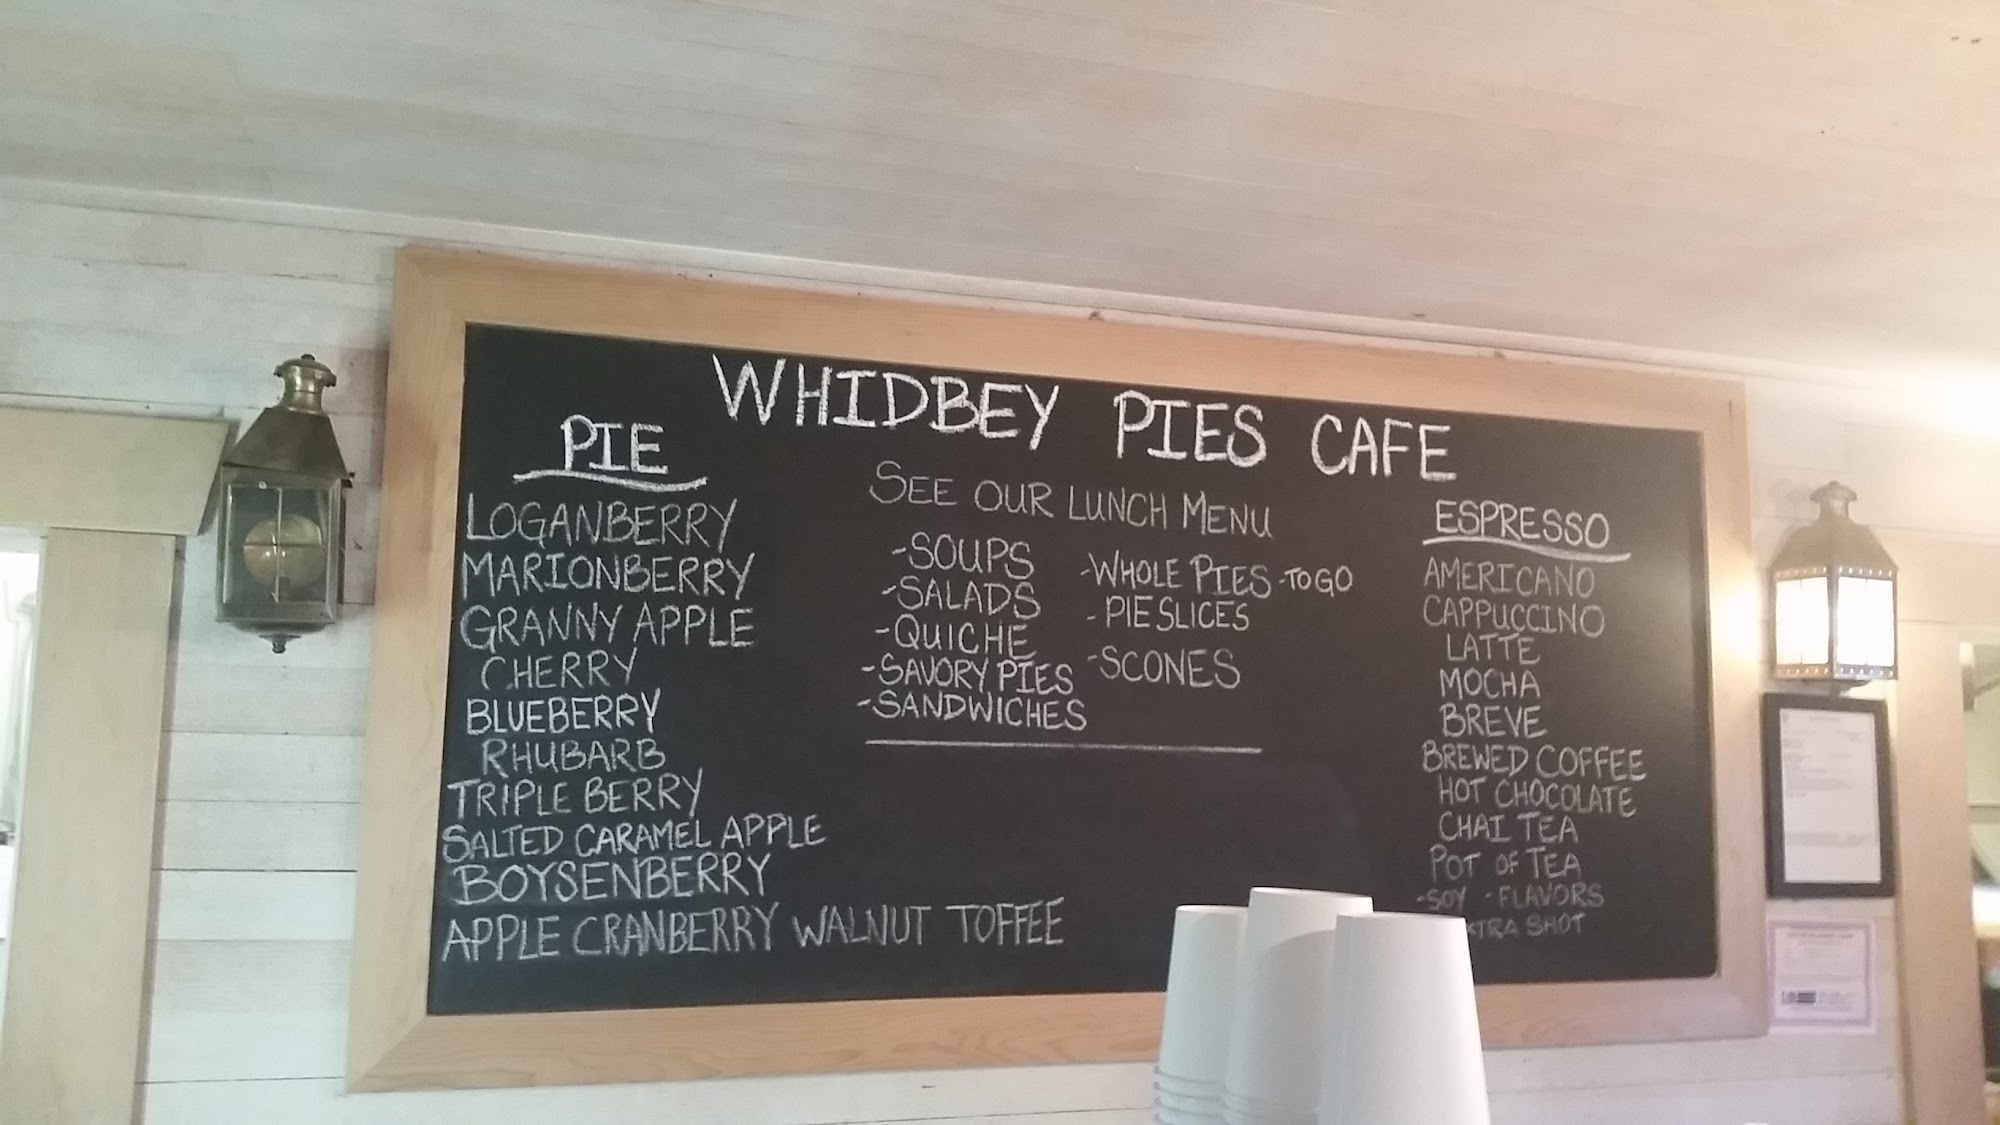 WHIDBEY PIES CAFE
PIE
LOGANBERRY
MARIONBERRY
GRANNY APPLE
CHERRY
BLUEBERRY
RHUBARB
TRIPLE BERRY
SALTED CARAMEL APPLE
BOYSENBERRY
APPLE CRANBERRY WALNUT TOFFEE
SEE OUR LUNCH MENU
-SOUPS
-SALADS
-QUICHE
-SAVORY PIES
-SANDWICHES
-WHOLE PIES-TO GO
-PIE SLICES
-SCONES
ESPRESSO
AMERICANO
CAPPUCCINO
LATTE
MOCHA
BREVE
BREWED COFFEE
HOT CHOCOLATE
CHAI TEA
POT OF TEA
-SOY -FLAVORS
XTRA SHOT